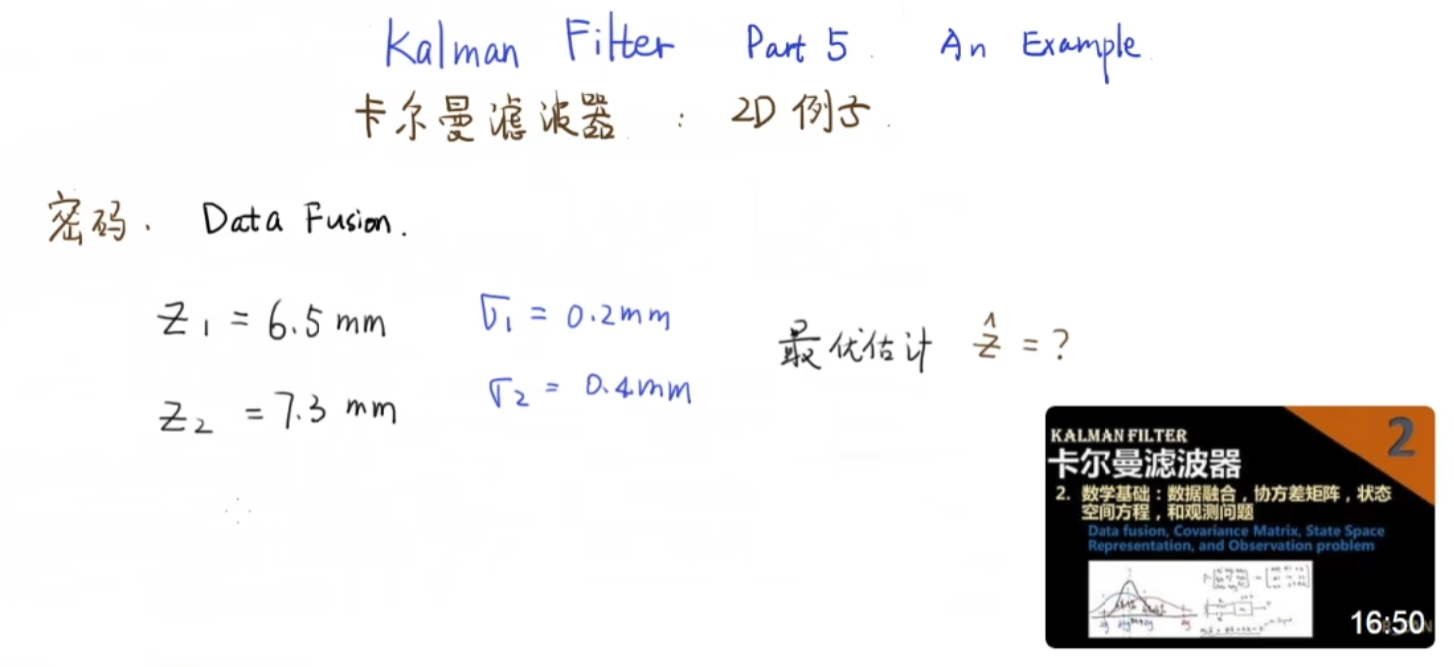 Kalman Filter Part 5. An Example
卡尔曼滤波器 : 2D 例子.
密码. Data Fusion.
z₁ = 6.5 mm σ₁ = 0.2mm
最优估计 ẑ = ?
z₂ = 7.3 mm σ₂ = 0.4mm
KALMAN FILTER
2
卡尔曼滤波器
2. 数学基础：数据融合，协方差矩阵，状态
空间方程，和观测问题
Data fusion, Covariance Matrix, State Space
Representation, and Observation problem
16:50